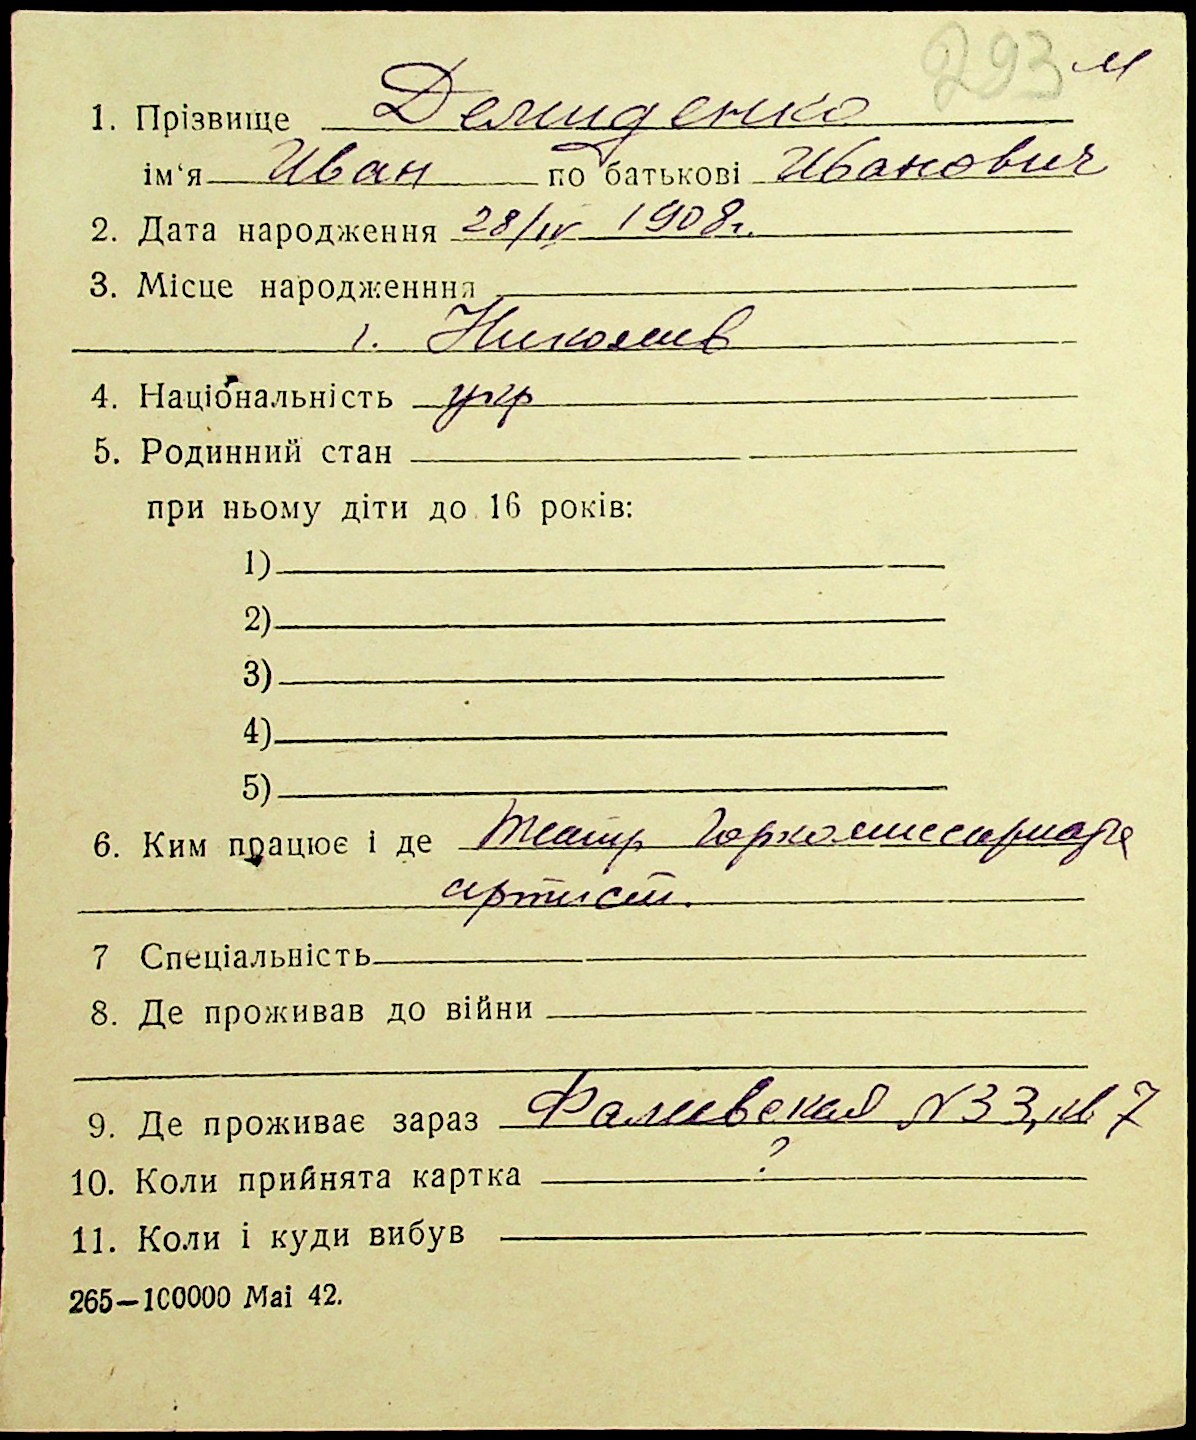 293 м
1. Прізвище Демиденко
ім‘я Иван по батькові Иванович
2. Дата народження 28/IV 1908г.
3. Місце народженння
г. Николаев
4. Національність укр
5. Родинний стан
при ньому діти до 16 років:
1)
2)
3)
4)
5)
6. Ким працює і де театр Горкомиссариата
артист.
7 Спеціальність
8. Де проживав до війни
9. Де проживає зараз Фалеевская №33, кв 7
10. Коли прийнята картка ?
11. Коли і куди вибув
265—100000 Mai 42.